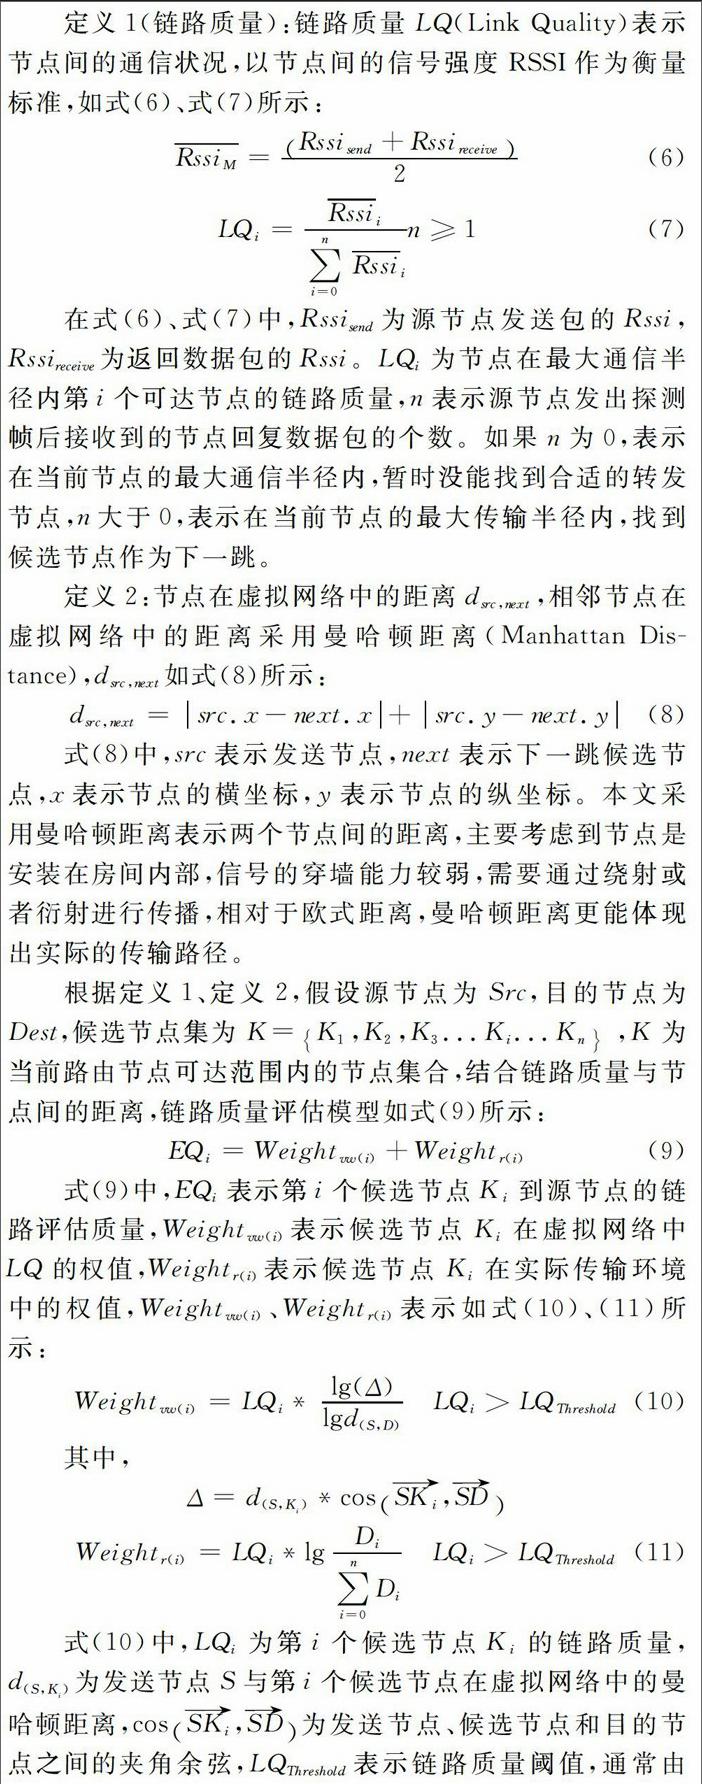 定义1(链路质量):链路质量LQ(Link Quality)表示
节点间的通信状况,以节点间的信号强度RSSI作为衡量
标准,如式(6)、式(7)所示:
$\overline{Rssi_M} = \frac{(Rssi_{send} + Rssi_{receive})}{2}$ (6)
$LQ_i = \frac{\overline{Rssi}_i}{\sum_{i=0}^{n} \overline{Rssi}_i} n \geqslant 1$ (7)
在式(6)、式(7)中,$Rssi_{send}$为源节点发送包的Rssi,
$Rssi_{receive}$为返回数据包的Rssi。$LQ_i$为节点在最大通信半
径内第i个可达节点的链路质量,n表示源节点发出探测
帧后接收到的节点回复数据包的个数。如果n为0,表示
在当前节点的最大通信半径内,暂时没能找到合适的转发
节点,n大于0,表示在当前节点的最大传输半径内,找到
候选节点作为下一跳。
定义2:节点在虚拟网络中的距离$d_{src,next}$,相邻节点在
虚拟网络中的距离采用曼哈顿距离(Manhattan Dis-
tance),$d_{src,next}$如式(8)所示:
$d_{src,next} = |src.x - next.x| + |src.y - next.y|$ (8)
式(8)中,src表示发送节点,next表示下一跳候选节
点,x表示节点的横坐标,y表示节点的纵坐标。本文采
用曼哈顿距离表示两个节点间的距离,主要考虑到节点是
安装在房间内部,信号的穿墙能力较弱,需要通过绕射或
者衍射进行传播,相对于欧式距离,曼哈顿距离更能体现
出实际的传输路径。
根据定义1、定义2,假设源节点为Src,目的节点为
Dest,候选节点集为$K=\{K_1,K_2,K_3...K_i...K_n\}$,K为
当前路由节点可达范围内的节点集合,结合链路质量与节
点间的距离,链路质量评估模型如式(9)所示:
$EQ_i = Weight_{vw(i)} + Weight_{r(i)}$ (9)
式(9)中,$EQ_i$表示第i个候选节点$K_i$到源节点的链
路评估质量,$Weight_{vw(i)}$表示候选节点$K_i$在虚拟网络中
LQ的权值,$Weight_{r(i)}$表示候选节点$K_i$在实际传输环境
中的权值,$Weight_{vw(i)}$、$Weight_{r(i)}$表示如式(10)、(11)所
示:
$Weight_{vw(i)} = LQ_i * \frac{\lg(\Delta)}{\lg d_{(S,D)}} \quad LQ_i > LQ_{Threshold}$ (10)
其中,
$\Delta = d_{(S,K_i)} * \cos(\overrightarrow{SK_i},\overrightarrow{SD})$
$Weight_{r(i)} = LQ_i * \lg \frac{D_i}{\sum_{i=0}^{n} D_i} \quad LQ_i > LQ_{Threshold}$ (11)
式(10)中,$LQ_i$为第i个候选节点$K_i$的链路质量,
$d_{(S,K_i)}$为发送节点S与第i个候选节点在虚拟网络中的曼
哈顿距离,$\cos(\overrightarrow{SK_i},\overrightarrow{SD})$为发送节点、候选节点和目的节
点之间的夹角余弦,$LQ_{Threshold}$表示链路质量阈值,通常由